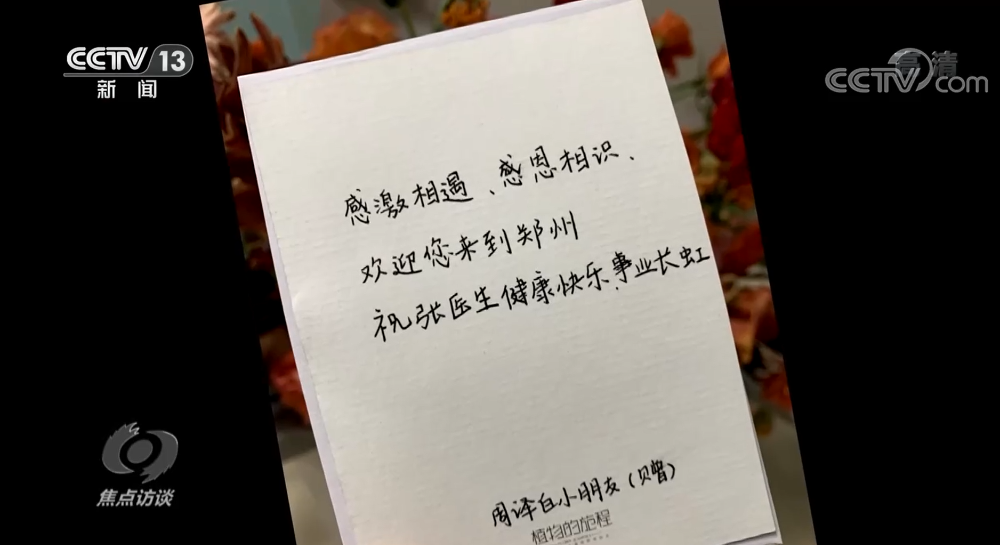 CCTV 13
新闻
高清
CCTV.com
感激相遇、感恩相识、
欢迎您来到郑州
祝张医生健康快乐、事业长虹
周译白小朋友（贝曾）
植物的旅程
焦点访谈